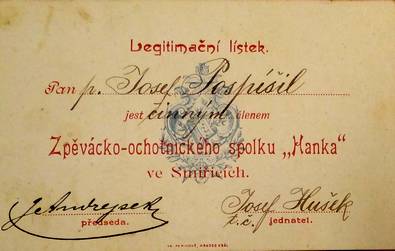 Legitimační lístek.
Pan p. Josef Pospíšil
jest činným členem
Zpěvácko-ochotnického spolku „Hanka“
ve Smiřicích.
Josef Hušek
předseda. t.č. jednatel.